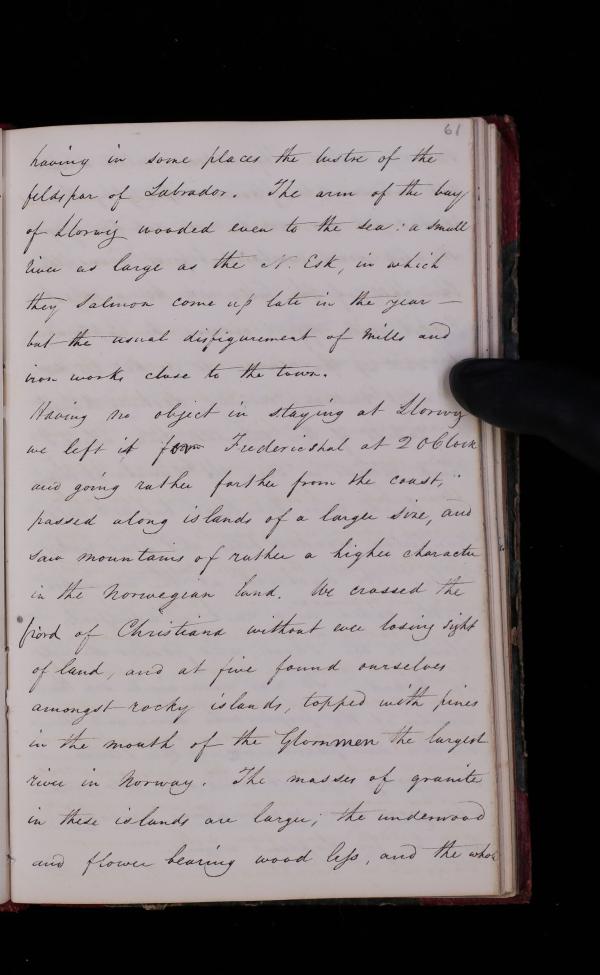 61
having in some places the lustre of the
feldspar of Labrador. The arm of the bay
of Llorwig wooded even to the sea: a small
river as large as the N. Esk, in which
they salmon come up late in the year —
but the usual disfigurement of mills and
iron works close to the town.
Having no object in staying at Llorwig
we left it for Fredericshal at 2 OClock
and going rather farther from the coast,
passed along islands of a larger size, and
saw mountains of rather a higher character
in the Norwegian land. We crossed the
fiord of Christiana without ever losing sight
of land, and at five found ourselves
amongst rocky islands, topped with pines
in the mouth of the Glommen the largest
river in Norway. The masses of granite
in these islands are larger; the underwood
and flower bearing wood less, and the whole